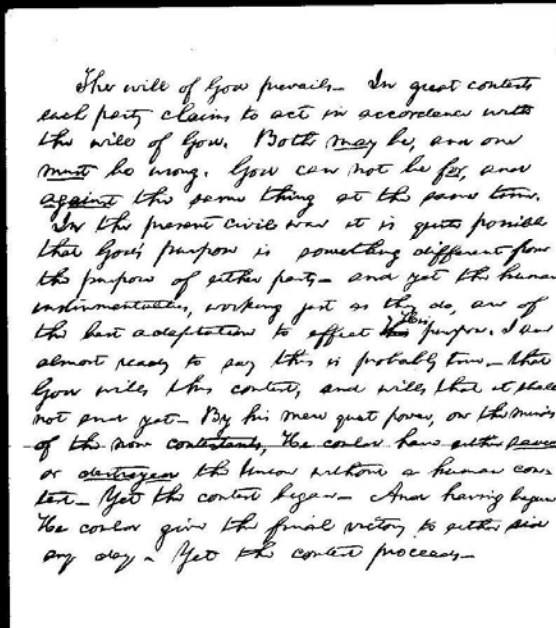 The will of God prevails— In great contests
each party claims to act in accordance with
the will of God. Both may be, and one
must be wrong. God can not be for, and
against the same thing at the same time.
In the present civil war it is quite possible
that God's purpose is something different from
the purpose of either party— and yet the human
instrumentalities, working just as they do, are of
the best adaptation to effect His purpose. I am
almost ready to say this is probably true— that
God wills this contest, and wills that it shall
not end yet— By his mere quiet power, on the minds
of the now contestants, He could have either saved
or destroyed the Union without a human con-
test— Yet the contest began— And having begun
He could give the final victory to either side
any day— Yet the contest proceeds—